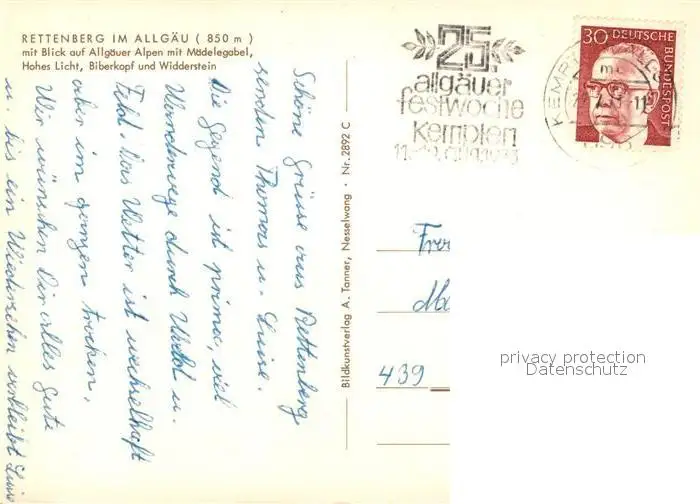 RETTENBERG IM ALLGÄU ( 850 m )
mit Blick auf Allgäuer Alpen mit Mädelegabel,
Hohes Licht, Biberkopf und Widderstein
Schöne Grüsse aus Rettenberg
senden Thomas u. Luise.
Die Gegend ist prima, viel
Wanderwege durch Wald u.
Feld. Das Wetter ist wechselhaft
aber im ganzen trocken.
Wir wünschen Dir alles Gute
u. bis ein Wiedersehen verbleibt Luise
Bildkunstverlag A. Tanner, Nesselwang · Nr. 2892 C
25.
allgäuer
festwoche
kempten
30 DEUTSCHE BUNDESPOST
439
privacy protection
Datenschutz